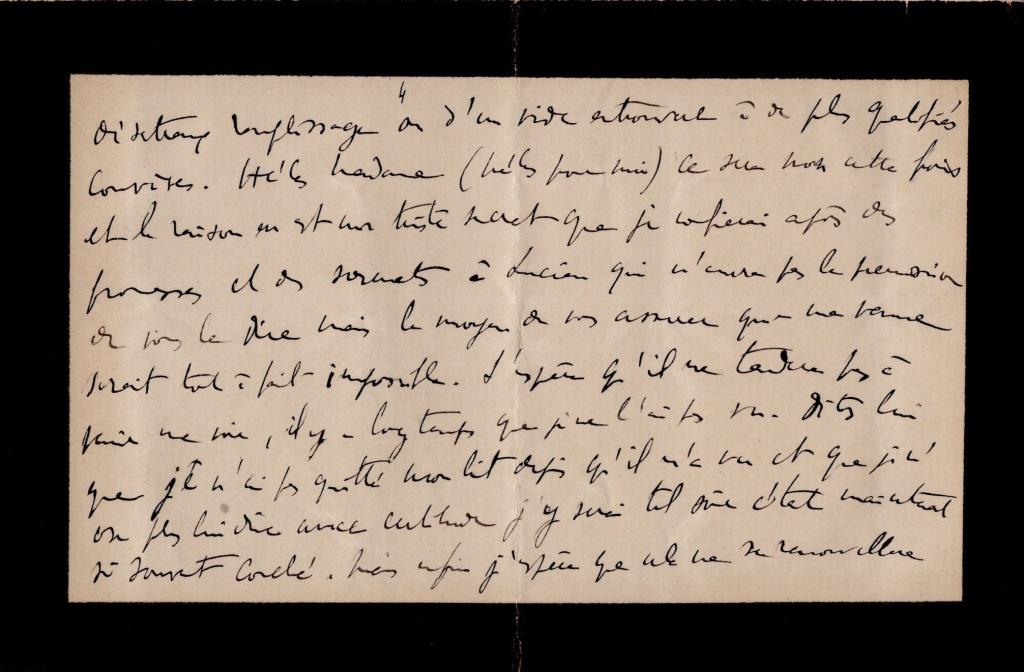 4
remplissage ou d'un vide entrouvert à de plus qualifiés
convives. Hélas Madame (hélas pour moi) ce sera non cette fois
et la raison en est mon triste secret que je confierai après des
promesses et des serments à Lucien qui n'aura pas la permission
de vous le dire mais le moyen de vous assurer que ma venue
serait tout à fait impossible. J'espère qu'il ne tardera pas à
venir me voir, il y a longtemps que je ne l'ai pas vu. Dites lui
que je n'ai pas quitté mon lit depuis qu'il m'a vu et que je n'
ose plus lui dire avec certitude j'y serai tel soir étant maintenant
si souvent couché. Mais enfin j'espère que cela ne se renouvellera